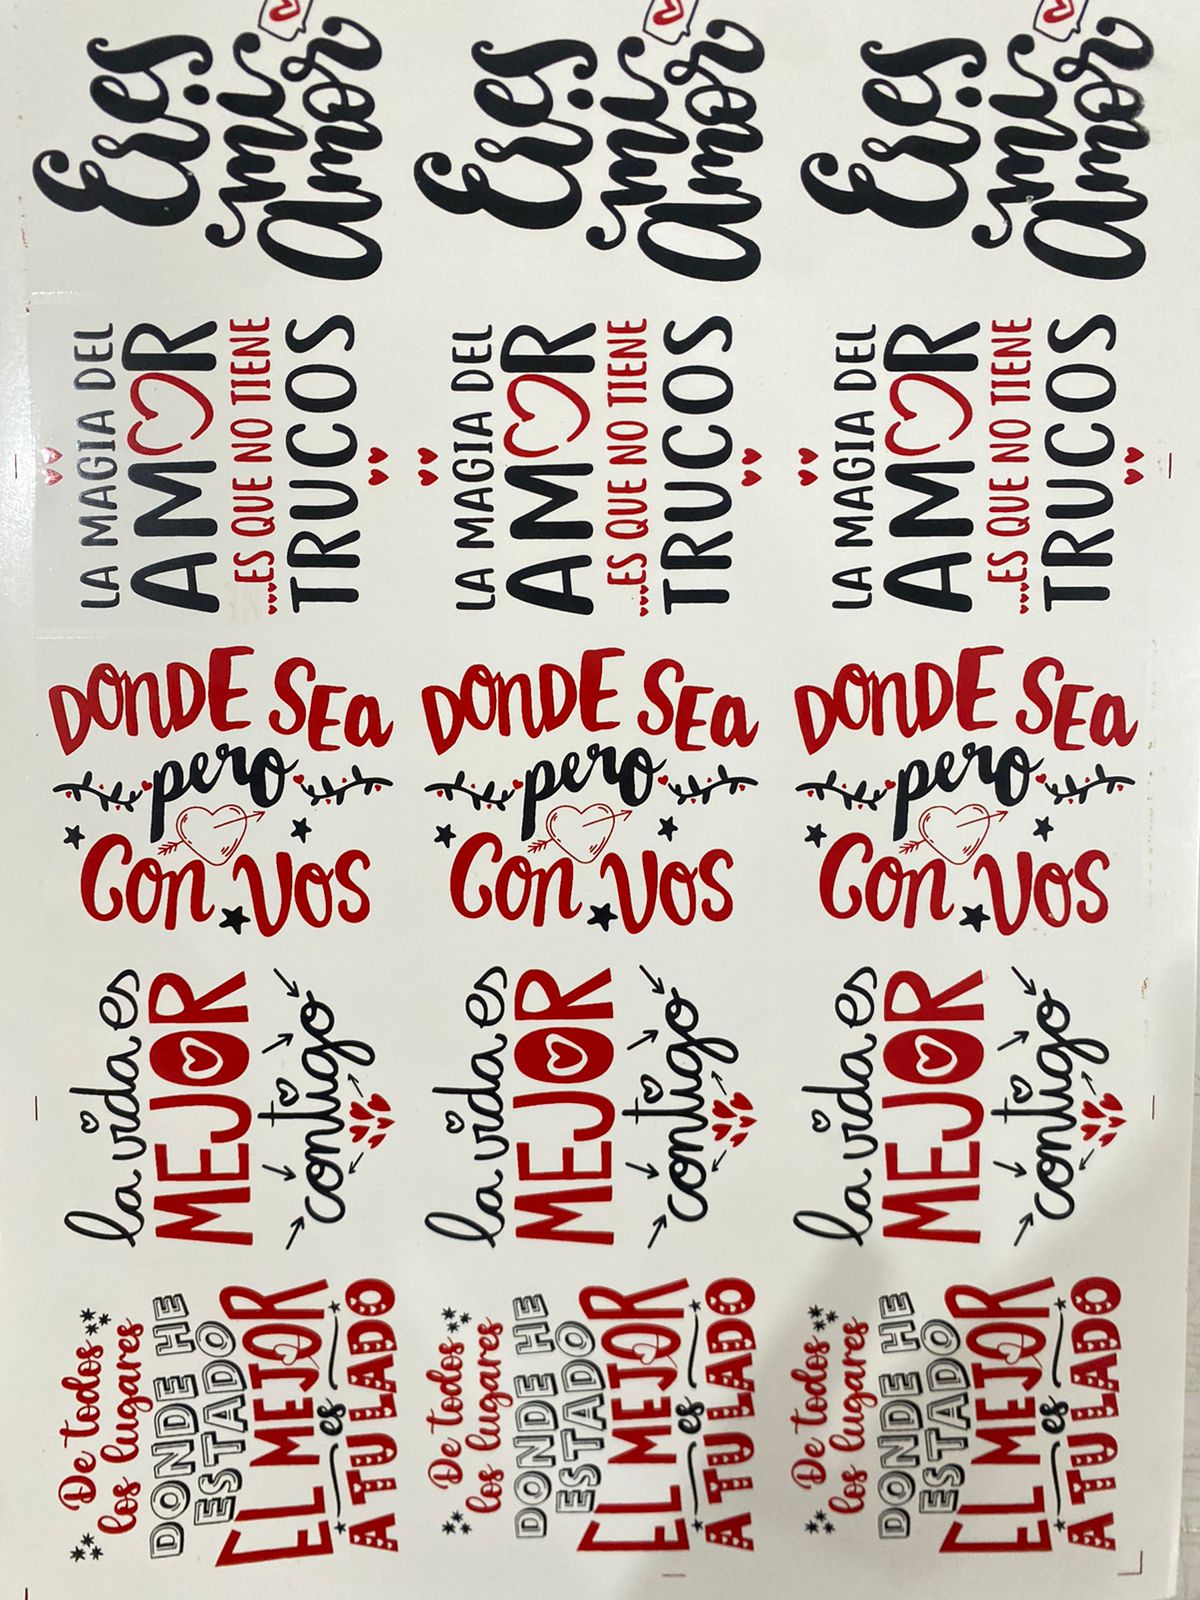 Eres
mi
Amor
Eres
mi
Amor
Eres
mi
Amor
LA MAGIA DEL
AMOR
...ES QUE NO TIENE
TRUCOS
LA MAGIA DEL
AMOR
...ES QUE NO TIENE
TRUCOS
LA MAGIA DEL
AMOR
...ES QUE NO TIENE
TRUCOS
DONDE SEa
pero
Con Vos
DONDE SEa
pero
Con Vos
DONDE SEa
pero
Con Vos
la vida es
MEJOR
contigo
la vida es
MEJOR
contigo
la vida es
MEJOR
contigo
De todos
los lugares
DONDE HE
ESTADO
EL MEJOR
es
A TU LADO
De todos
los lugares
DONDE HE
ESTADO
EL MEJOR
es
A TU LADO
De todos
los lugares
DONDE HE
ESTADO
EL MEJOR
es
A TU LADO